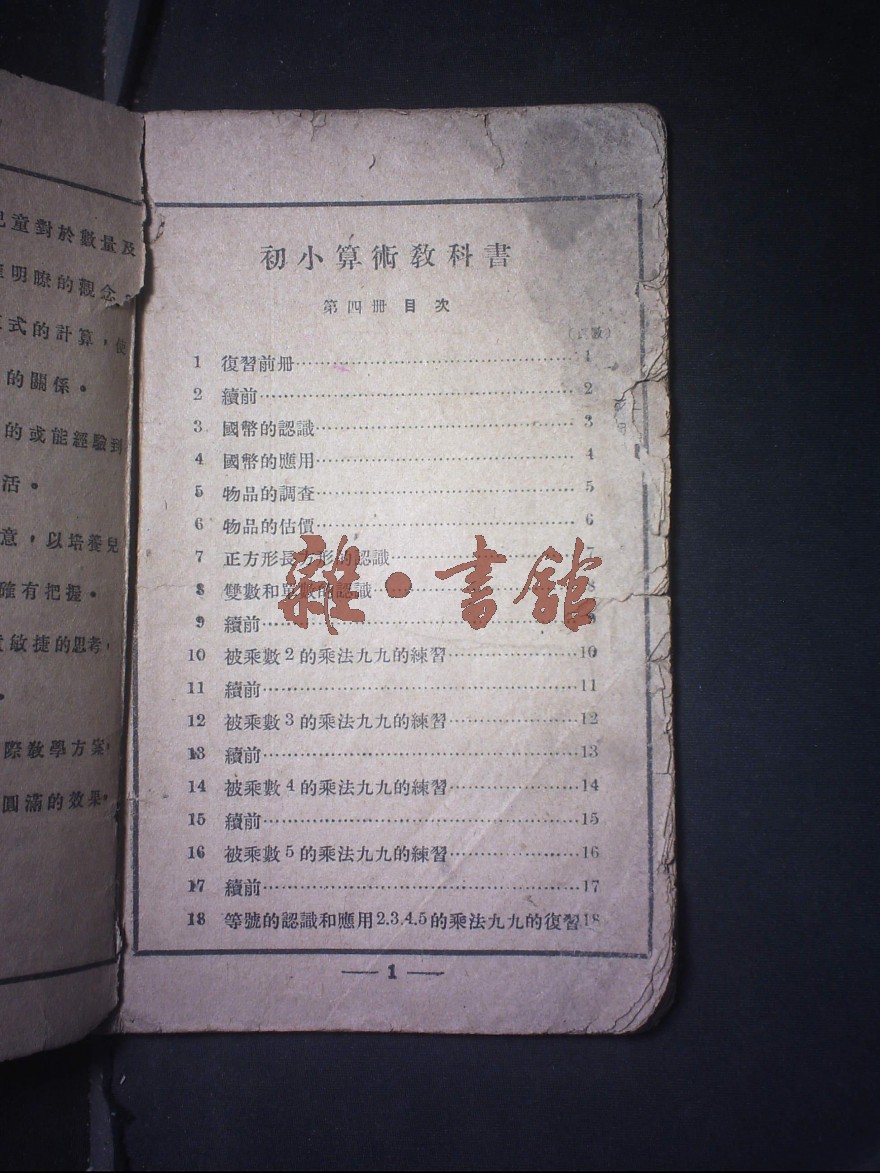 兒童對於數量及
明瞭的觀念。
式的計算，使
的關係。
的或能經驗到
活。
意，以培養兒
確有把握。
敏捷的思考，
際敎學方案，
圓滿的效果。
初小算術敎科書
第四冊 目次
（頁數）
1 復習前册……1
2 續前……2
3 國幣的認識……3
4 國幣的應用……4
5 物品的調查……5
6 物品的估價……6
7 正方形長方形的認識……7
8 雙數和單數的認識……8
9 續前……9
10 被乘數2的乘法九九的練習……10
11 續前……11
12 被乘數3的乘法九九的練習……12
13 續前……13
14 被乘數4的乘法九九的練習……14
15 續前……15
16 被乘數5的乘法九九的練習……16
17 續前……17
18 等號的認識和應用2.3.4.5的乘法九九的復習18
— 1 —
雜·書館